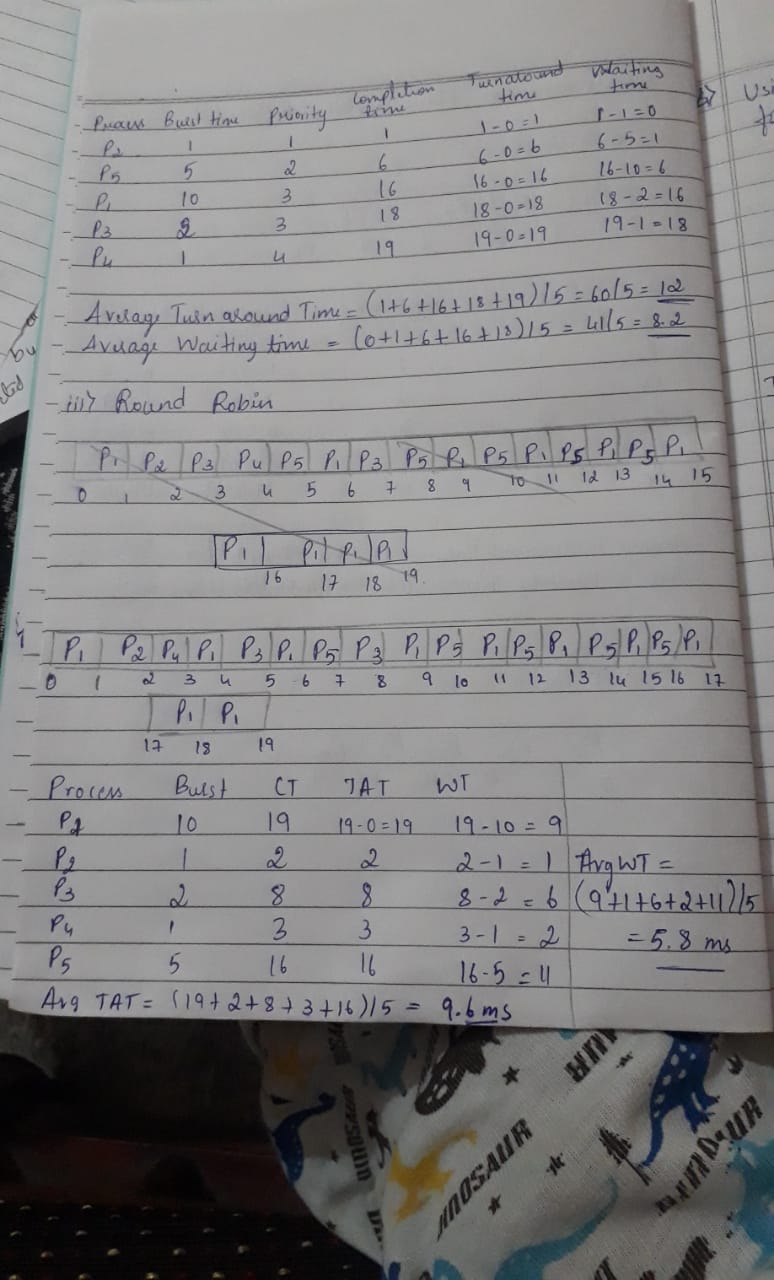 Process Burst time Priority Completion time Turnaround time Waiting time
P2 1 1 1 1-0=1 1-1=0
P5 5 2 6 6-0=6 6-5=1
P1 10 3 16 16-0=16 16-10=6
P3 2 3 18 18-0=18 18-2=16
P4 1 4 19 19-0=19 19-1=18
Average Turn around Time = (1+6+16+18+19)/5 = 60/5 = 12
Average Waiting time = (0+1+6+16+18)/5 = 41/5 = 8.2
iii) Round Robin
P1 P2 P3 P4 P5 P1 P3 P5 P1 P5 P1 P5 P1 P5 P1
0 1 2 3 4 5 6 7 8 9 10 11 12 13 14 15
P1 P1 P1 P1
16 17 18 19
P1 P2 P4 P1 P3 P1 P5 P3 P1 P5 P1 P5 P1 P5 P1 P5 P1
0 1 2 3 4 5 6 7 8 9 10 11 12 13 14 15 16 17
P1 P1
17 18 19
Process Burst CT TAT WT
P1 10 19 19-0=19 19-10=9
P2 1 2 2 2-1=1 Avg WT =
P3 2 8 8 8-2=6 (9+1+6+2+11)/5
P4 1 3 3 3-1=2 =5.8 ms
P5 5 16 16 16-5=11
Avg TAT = (19+2+8+3+16)/5 = 9.6 ms
Usi
by
DINOSAUR